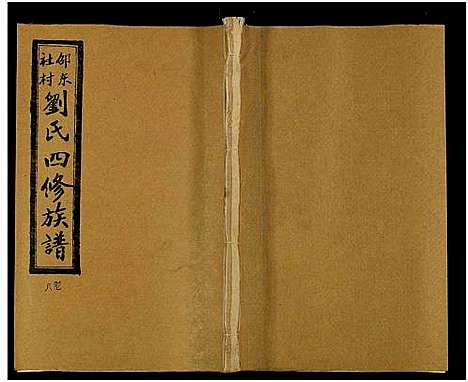 邵东
社村
劉氏四修族譜
卷八